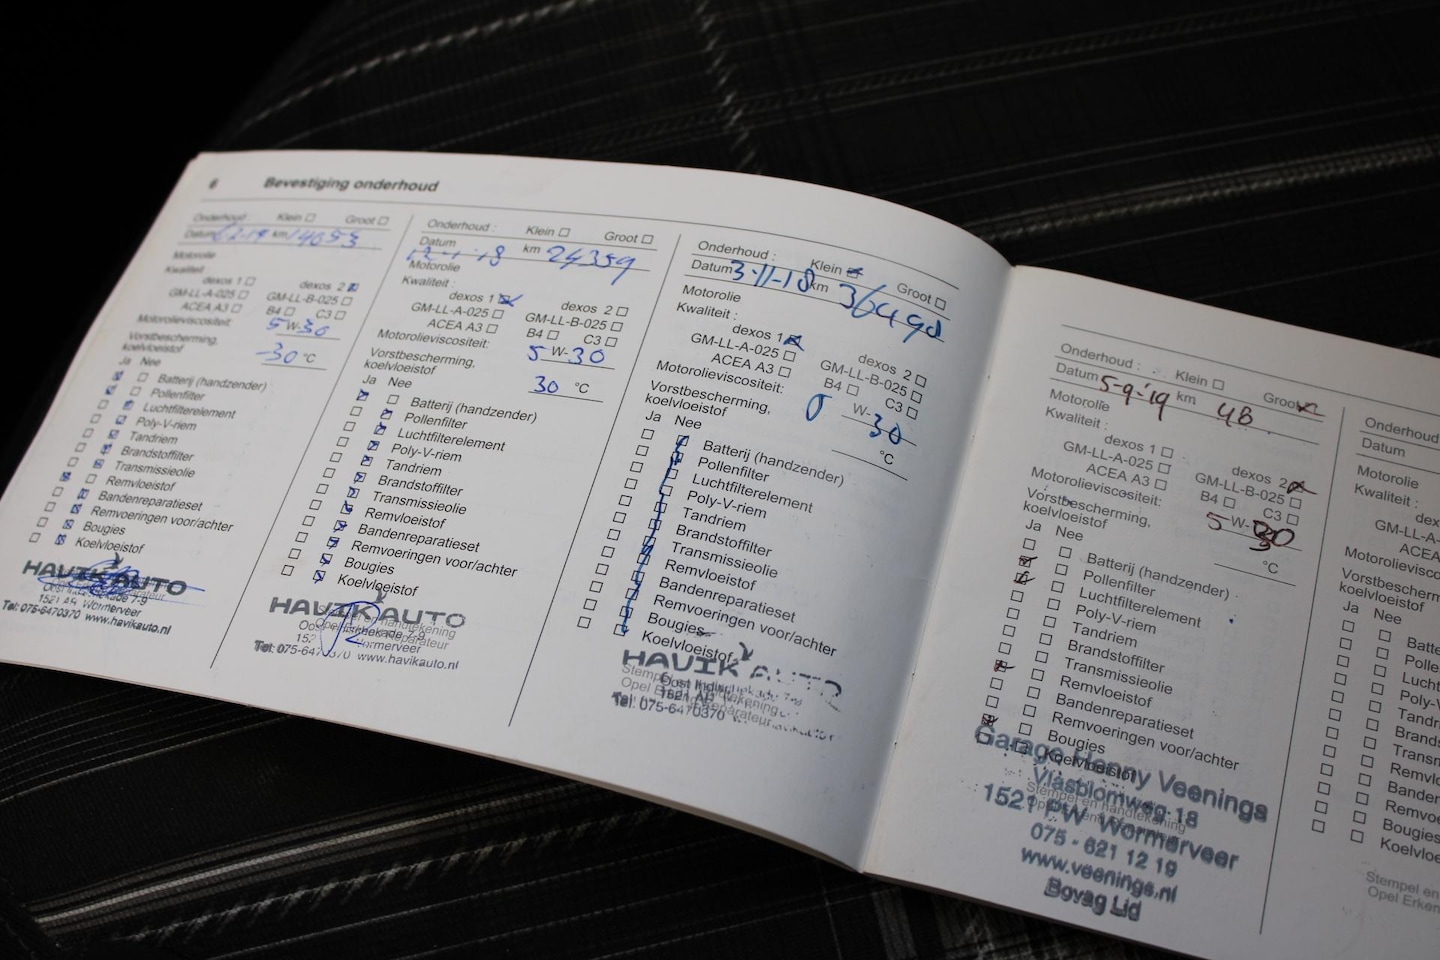 6 Bevestiging onderhoud
Onderhoud : Klein Groot
Datum km 14053
Motorolie
Kwaliteit :
dexos 1 dexos 2
GM-LL-A-025 GM-LL-B-025
ACEA A3 B4 C3
Motorolieviscositeit: 5 W-30
Vorstbescherming,
koelvloeistof -30 °C
Ja Nee
Batterij (handzender)
Pollenfilter
Luchtfilterelement
Poly-V-riem
Tandriem
Brandstoffilter
Transmissieolie
Remvloeistof
Bandenreparatieset
Remvoeringen voor/achter
Bougies
Koelvloeistof
HAVIK AUTO
1521 AB Wormerveer
Tel: 075-6470370 www.havikauto.nl
Onderhoud : Klein Groot
Datum km 24359
Motorolie
Kwaliteit :
dexos 1 dexos 2
GM-LL-A-025 GM-LL-B-025
ACEA A3 B4 C3
Motorolieviscositeit: 5 W-30
Vorstbescherming,
koelvloeistof 30 °C
Ja Nee
Batterij (handzender)
Pollenfilter
Luchtfilterelement
Poly-V-riem
Tandriem
Brandstoffilter
Transmissieolie
Remvloeistof
Bandenreparatieset
Remvoeringen voor/achter
Bougies
Koelvloeistof
HAVIK AUTO
www.havikauto.nl
Onderhoud : Klein Groot
Datum 3-11-18 km
Motorolie
Kwaliteit :
dexos 1 dexos 2
GM-LL-A-025 GM-LL-B-025
ACEA A3 B4 C3
Motorolieviscositeit: 0 W-30
Vorstbescherming,
koelvloeistof °C
Ja Nee
Batterij (handzender)
Pollenfilter
Luchtfilterelement
Poly-V-riem
Tandriem
Brandstoffilter
Transmissieolie
Remvloeistof
Bandenreparatieset
Remvoeringen voor/achter
Bougies
Koelvloeistof
HAVIK AUTO
Stempel en handtekening
1521 AB
Tel: 075-6470370
Onderhoud : Klein Groot
Datum 5-9-'19 km 48
Motorolie
Kwaliteit :
dexos 1 dexos 2
GM-LL-A-025 GM-LL-B-025
ACEA A3 B4 C3
Motorolieviscositeit: 5 W-30
Vorstbescherming,
koelvloeistof °C
Ja Nee
Batterij (handzender)
Pollenfilter
Luchtfilterelement
Poly-V-riem
Tandriem
Brandstoffilter
Transmissieolie
Remvloeistof
Bandenreparatieset
Remvoeringen voor/achter
Bougies
Koelvloeistof
Garage Henny Veenings
Vlasblomweg 18
1521 PW Wormerveer
075 - 621 12 19
www.veenings.nl
Bovag Lid
Onderhoud
Datum
Motorolie
Kwaliteit :
GM-LL-
ACEA
Motorolieviscos
Vorstbescherm
koelvloeistof
Ja Nee
Batte
Polle
Lucht
Poly-V
Tandr
Brands
Transm
Remvlo
Banden
Remvoe
Bougies
Koelvloe
Stempel en
Opel Erken